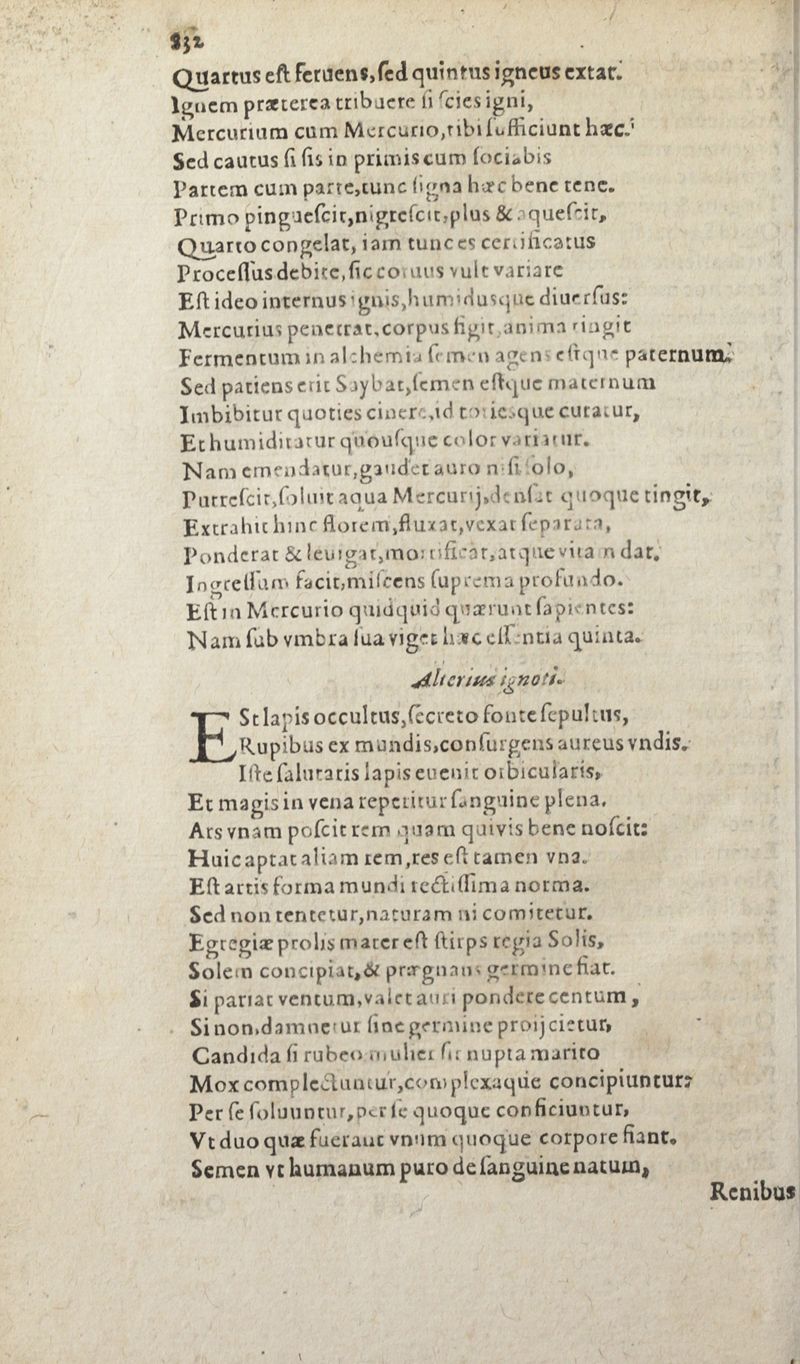 232
Quartus eſt feruens, ſed quintus igneus extat.
Ignem præterea tribuere ſi ſcies igni,
Mercurium cum Mercurio, tibi ſufficiunt hæc.
Sed cautus ſi ſis in primis cum ſociabis
Partem cum parte, tunc ſigna hæc bene tene.
Primo pingueſcit, nigreſcit, plus & aqueſcit,
Quarto congelat, iam tunc es certificatus
Proceſſus debite, ſic vult variare
Eſt ideo internus ignis, humidusque diuerſus:
Mercurius penetrat, corpus figit, anima tingit
Fermentum in alchemia ſemen agens eſtque paternum,
Sed patiens erit Saybat, ſemen eſtque maternum
Imbibitur quoties cinere, id totiesque curatur,
Et humiditatur quouſque color variatur.
Nam emendatur, gaudet auro niſi ſolo,
Putreſcit, ſoluit aqua Mercurij, denſat quoque tingit,
Extrahit hinc florem, fluxat, vexat ſeparata,
Ponderat & leuigat, mortificat, atque vitam dat.
Ingreſſum facit, miſcens ſuprema profundo.
Eſt in Mercurio quidquid quærunt ſapientes:
Nam ſub vmbra ſua viget hæc eſſentia quinta.
Alterius ignoti.
ESt lapis occultus, ſecreto fonte ſepultus,
Rupibus ex mundis, conſurgens aureus vndis.
Iſte ſalutaris lapis euenit orbicularis,
Et magis in vena reperitur ſanguine plena.
Ars vnam poſcit rem quam quivis bene noſcit:
Huic aptat aliam rem, res eſt tamen vna.
Eſt artis forma mundi rectiſſima norma.
Sed non tentetur, naturam ni comitetur.
Egregiæ prolis mater eſt ſtirps regia Solis,
Solem concipiat, & prægnans germine fiat.
Si pariat ventum, valet auri pondere centum,
Si non, damnetur ſine germine proijcietur,
Candida ſi rubeo mulier ſit nupta marito
Mox complectuntur, complexaque concipiuntur:
Per ſe ſoluuntur, per ſe quoque conficiuntur,
Vt duo quæ fuerant vnum quoque corpore fiant.
Semen vt humanum puro de ſanguine natum,
Renibus